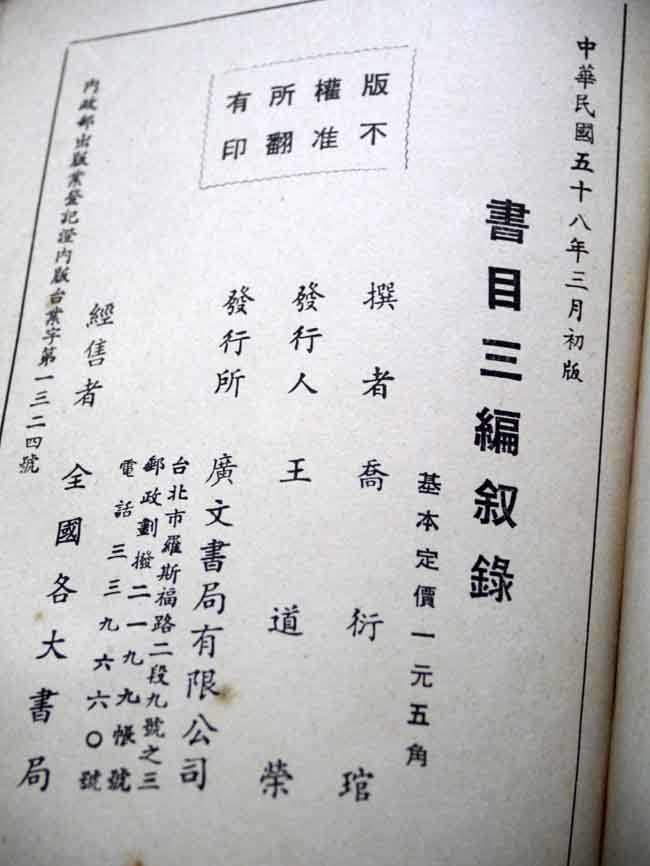 中華民國五十八年三月初版
書目三編叙錄
基本定價一元五角
版權所有
不准翻印
撰者 喬衍琯
發行人 王道榮
發行所 廣文書局有限公司
台北市羅斯福路二段九號之三
郵政劃撥二一九九帳號
電話三三九六六〇號
經售者 全國各大書局
內政部出版業登記證內版台業字第一三二四號